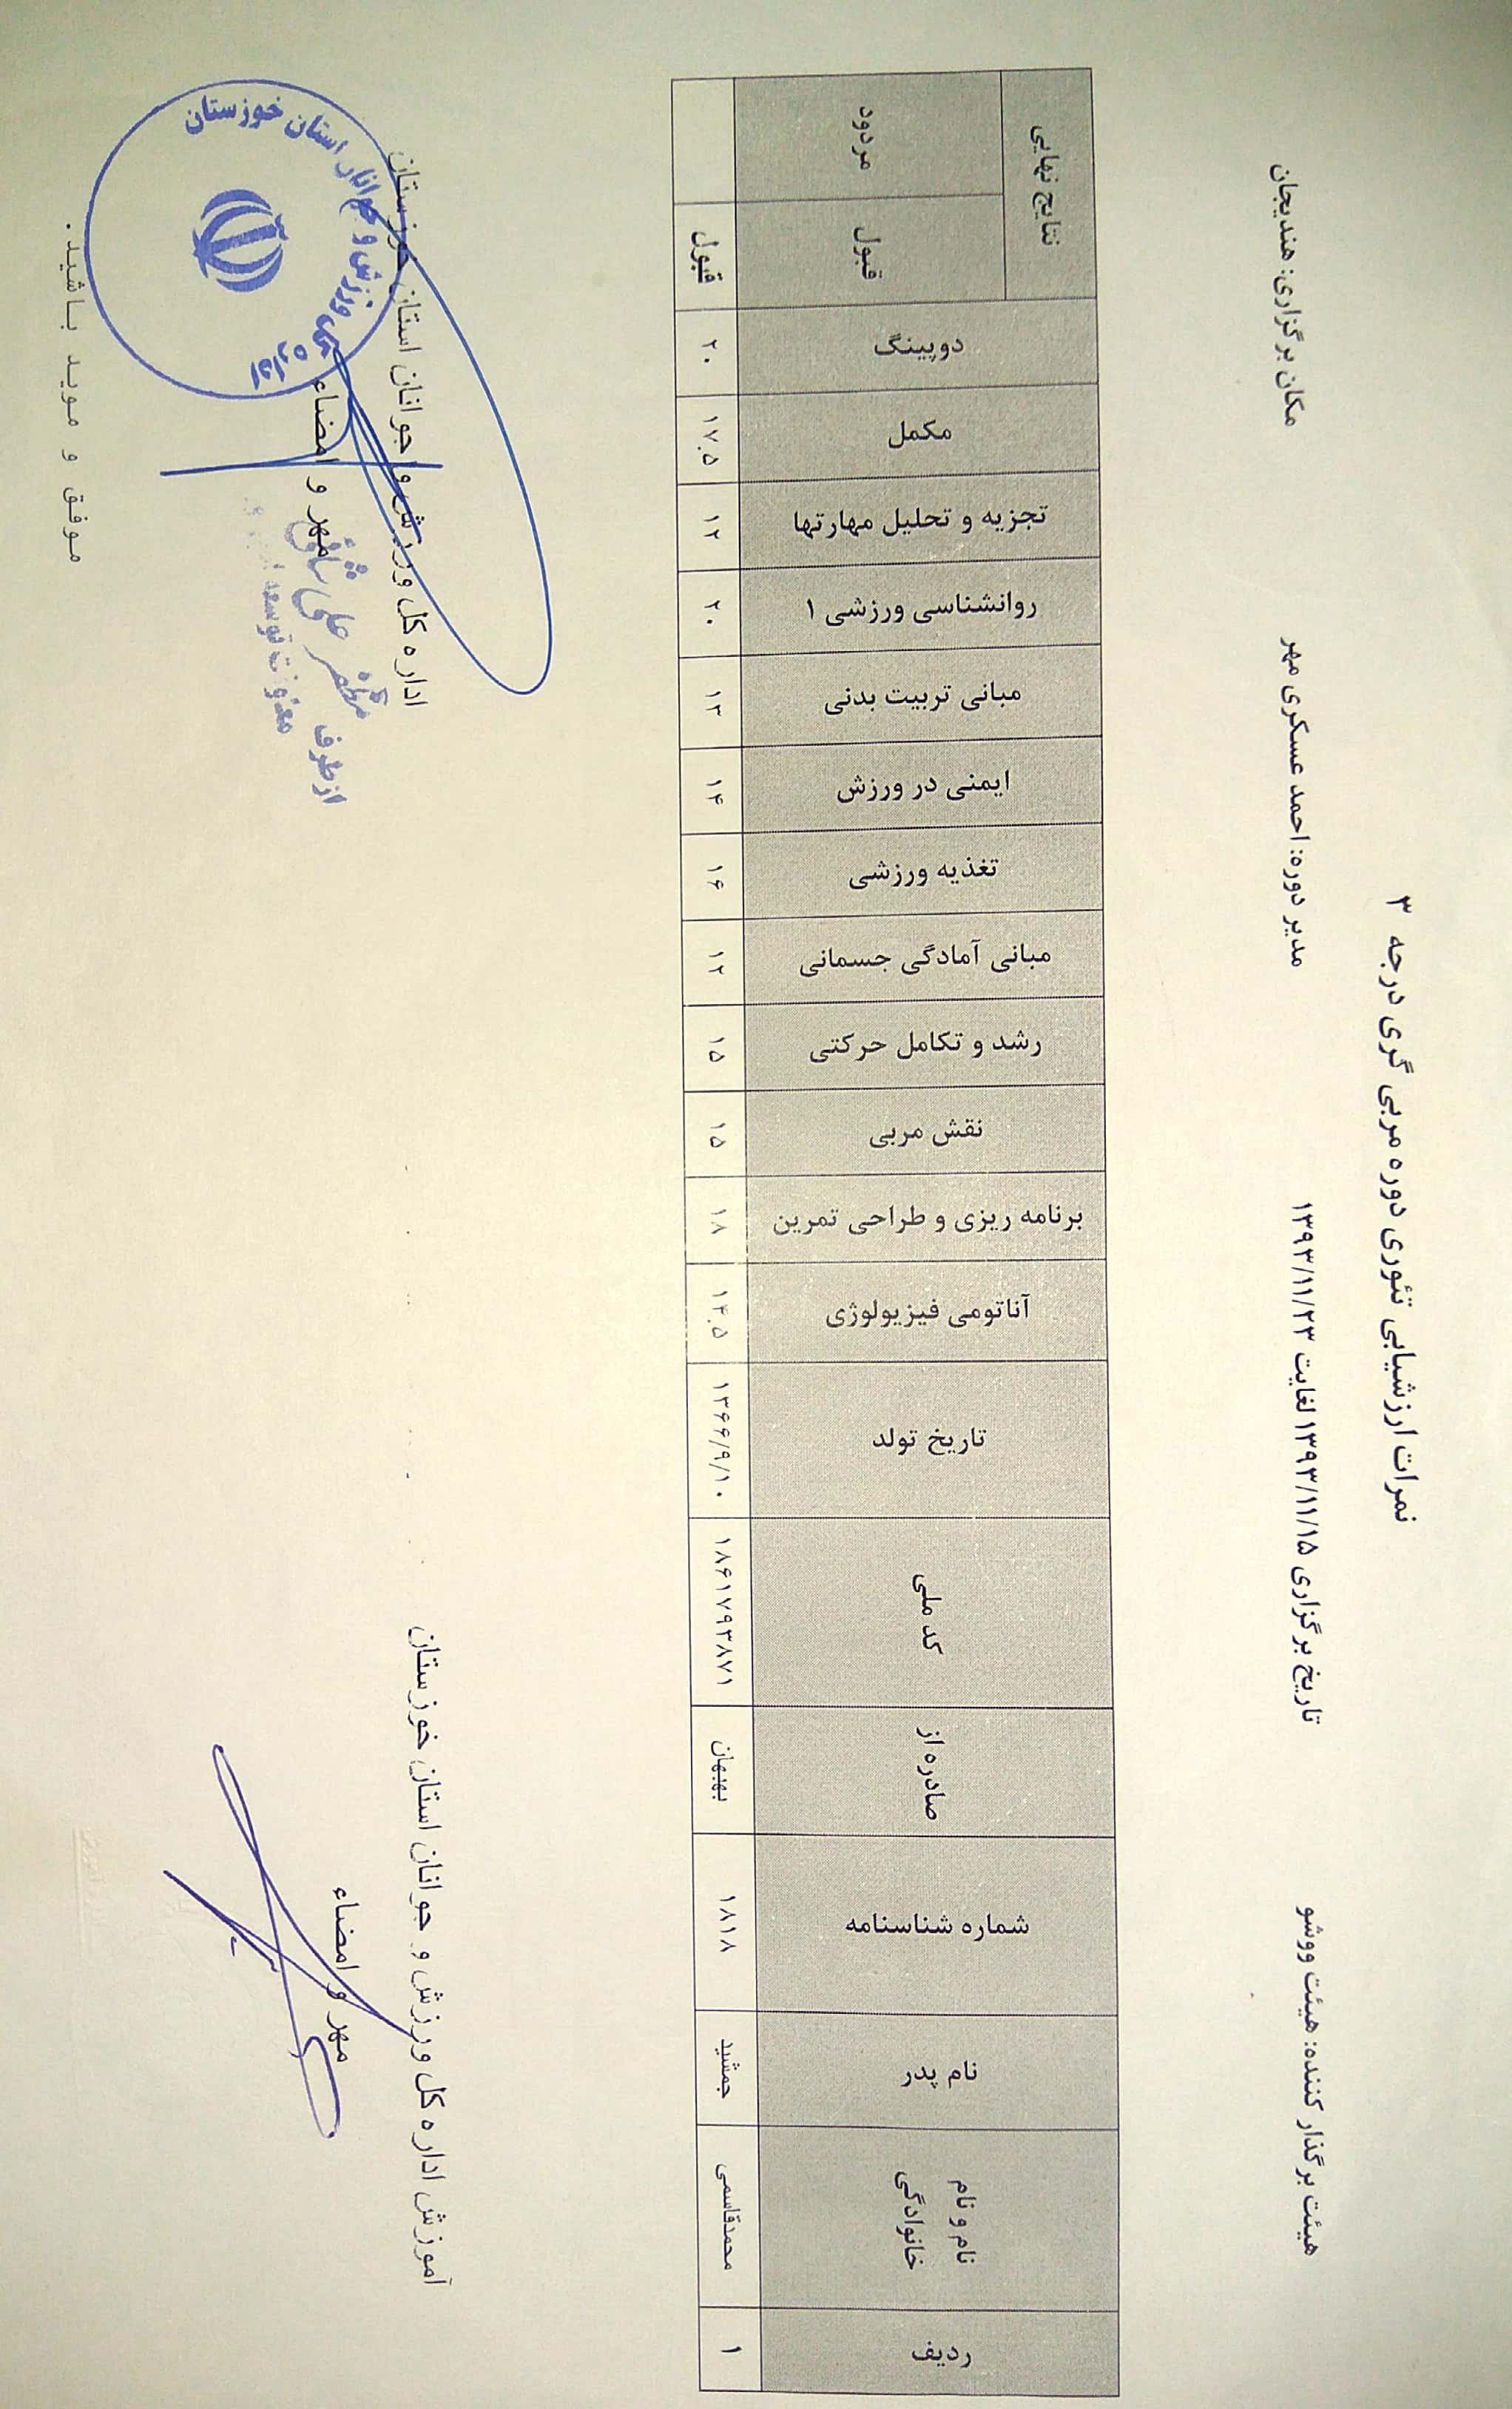 نمرات ارزشیابی تئوری دوره مربی گری درجه ۳
هیئت برگذار کننده: هیئت ووشو تاریخ برگزاری ۱۳۹۳/۱۱/۱۵ لغایت ۱۳۹۳/۱۱/۲۳ مدیر دوره: احمد عسکری مهر مکان برگزاری: هندیجان
ردیف نام و نام خانوادگی نام پدر شماره شناسنامه صادره از کد ملی تاریخ تولد آناتومی فیزیولوژی برنامه ریزی و طراحی تمرین نقش مربی رشد و تکامل حرکتی مبانی آمادگی جسمانی تغذیه ورزشی ایمنی در ورزش مبانی تربیت بدنی روانشناسی ورزشی ۱ تجزیه و تحلیل مهارتها مکمل دوپینگ نتایج نهایی
قبول مردود
۱ محمدقاسمی جمشید ۱۸۱۸ بهبهان ۱۸۶۱۷۹۳۸۷۱ ۱۳۶۶/۹/۱۰ ۱۴.۵ ۱۸ ۱۵ ۱۵ ۱۲ ۱۶ ۱۴ ۱۳ ۲۰ ۱۲ ۱۷.۵ ۲۰ قبول
آموزش اداره کل ورزش و جوانان استان خوزستان
مهر و امضاء
اداره کل ورزش و جوانان استان خوزستان
مهر و امضاء
از طرف
اداره کل ورزش و جوانان استان خوزستان
موفق و موید باشید.